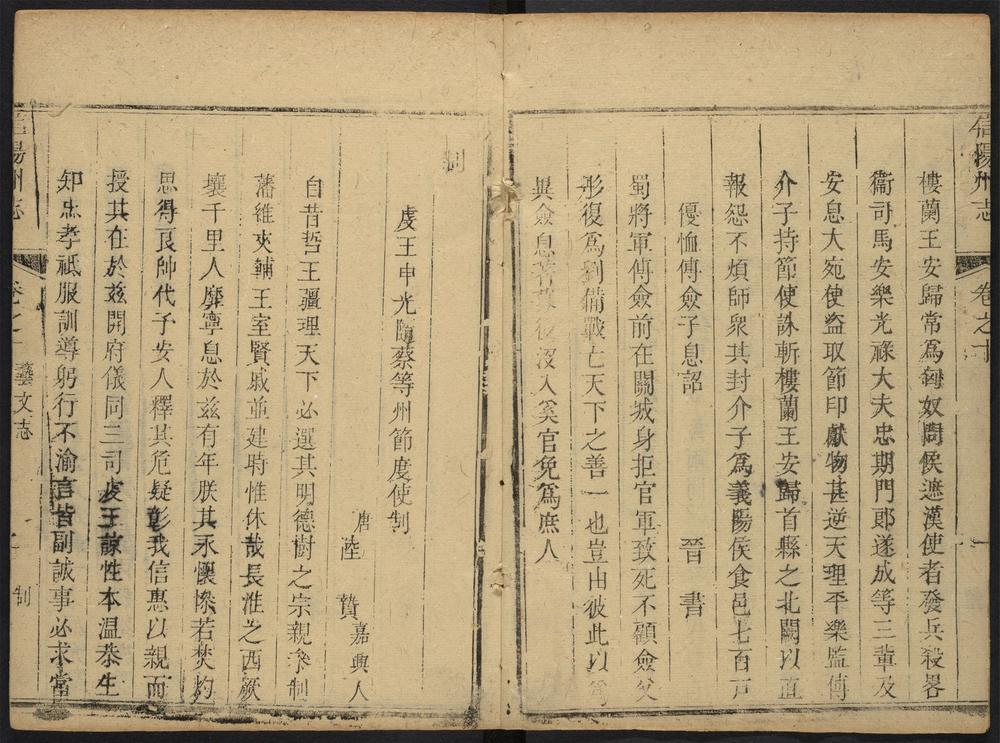 信陽州志 卷之十
樓蘭王安歸常爲匈奴間候遮漢使者發兵殺畧
衞司馬安樂光祿大夫忠期門郎遂成等三輩及
安息大宛使盜取節印獻物甚逆天理平樂監傅
介子持節使誅斬樓蘭王安歸首縣之北闕以直
報怨不煩師衆其封介子爲義陽侯食邑七百戸
優恤傅僉子息詔 晉書
蜀將軍傅僉前在關城身拒官軍致死不顧僉父
肜復爲劉備戰亡天下之善一也豈由彼此以爲
異僉息著募後沒入奚官免爲庶人
制
虔王申光隨蔡等州節度使制
唐陸 贄嘉興人
自昔哲王疆理天下必選其明德樹之宗親衆制
藩維夾輔王室賢戚並建時惟休哉長淮之西厥
壤千里人靡寧息於兹有年朕其永懷慘若焚灼
思得良帥代予安人釋其危疑彰我信惠以親而
授其在於兹開府儀同三司虔王諒性本溫恭生
知忠孝祗服訓導躬行不渝言皆副誠事必求當
信陽州志 卷之十 藝文志 一 制